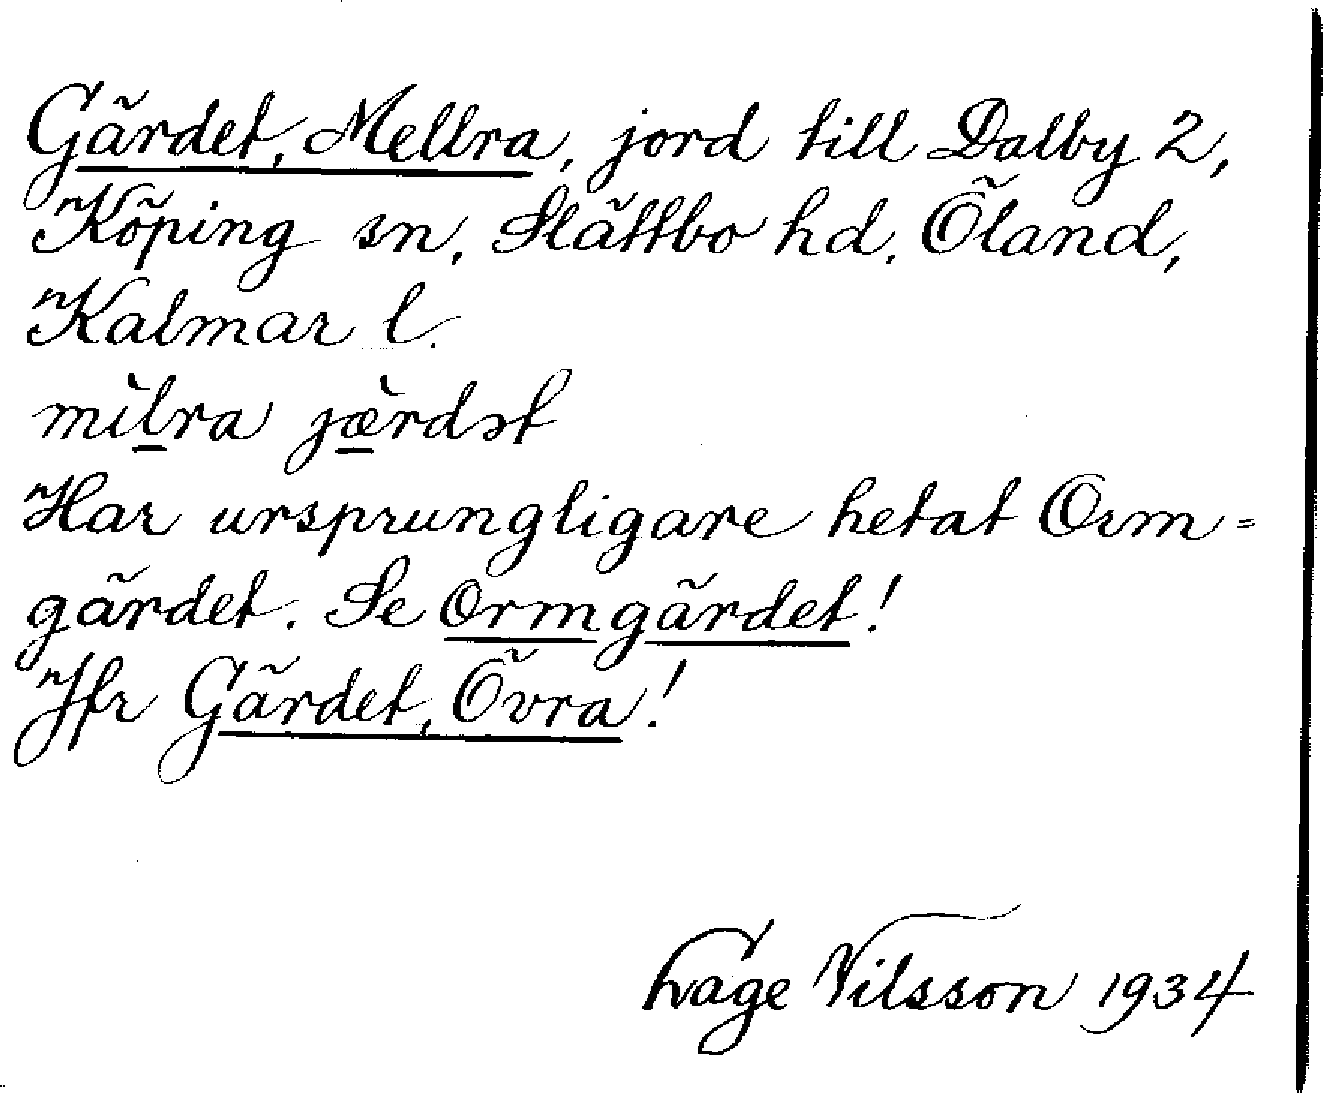 Gärdet, Mellra, jord till Dalby 2,
Köping sn, Slättbo hd, Öland,
Kalmar l.
mìlra jæ̀rdət
Har ursprungligare hetat Orm=
gärdet. Se Ormgärdet!
Jfr Gärdet, Övra!
Tvage Nilsson 1934